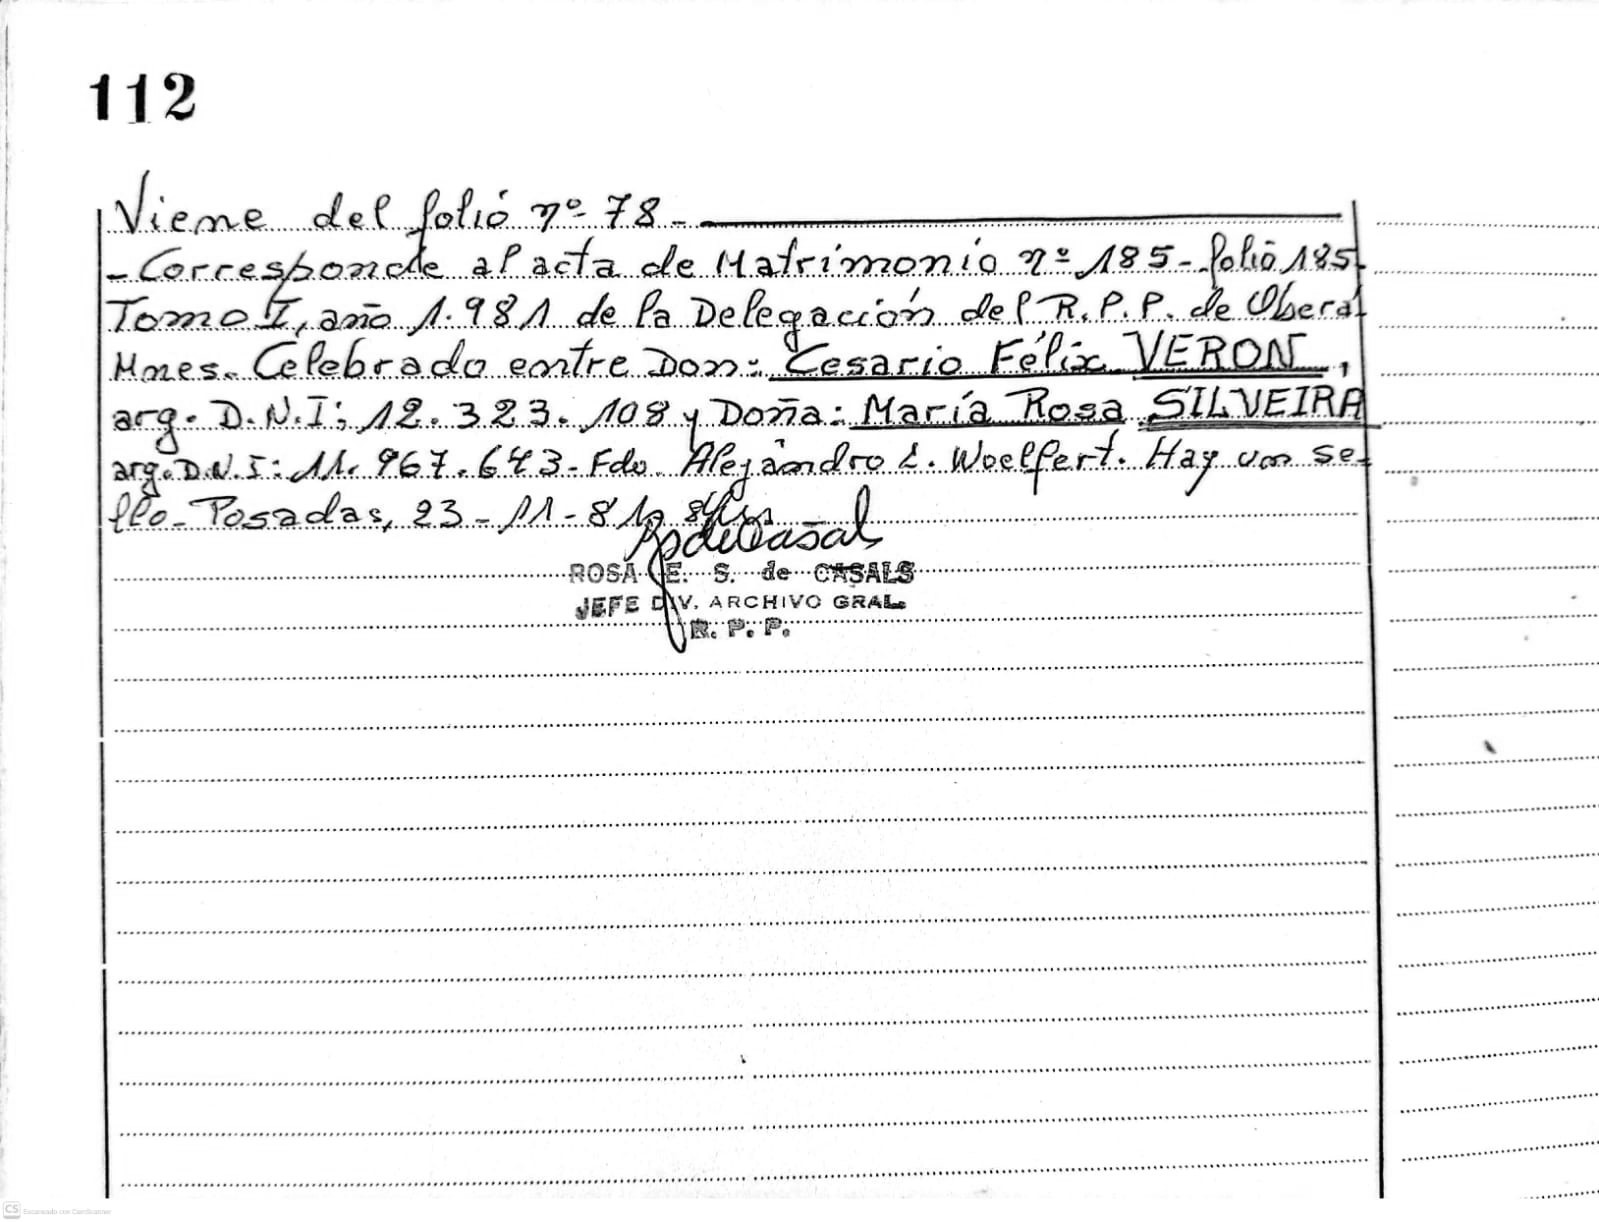 112
Viene del folió nº 78-
- Corresponde al acta de Matrimonio nº 185 - folió 185-
Tomo I, año 1.981 de la Delegación del R.P.P. de Oberá-
Mnes. Celebrado entre Don: Cesario Félix VERON,
arg. D.N.I: 12.323.108 y Doña: María Rosa SILVEIRA
arg. D.N.I: 11.967.643- Fdo. Alejandro L. Woelfert. Hay un se-
llo- Posadas, 23-11-81
ROSA E. S. de CASALS
JEFE DIV. ARCHIVO GRAL.
R. P. P.
CS Escaneado con CamScanner